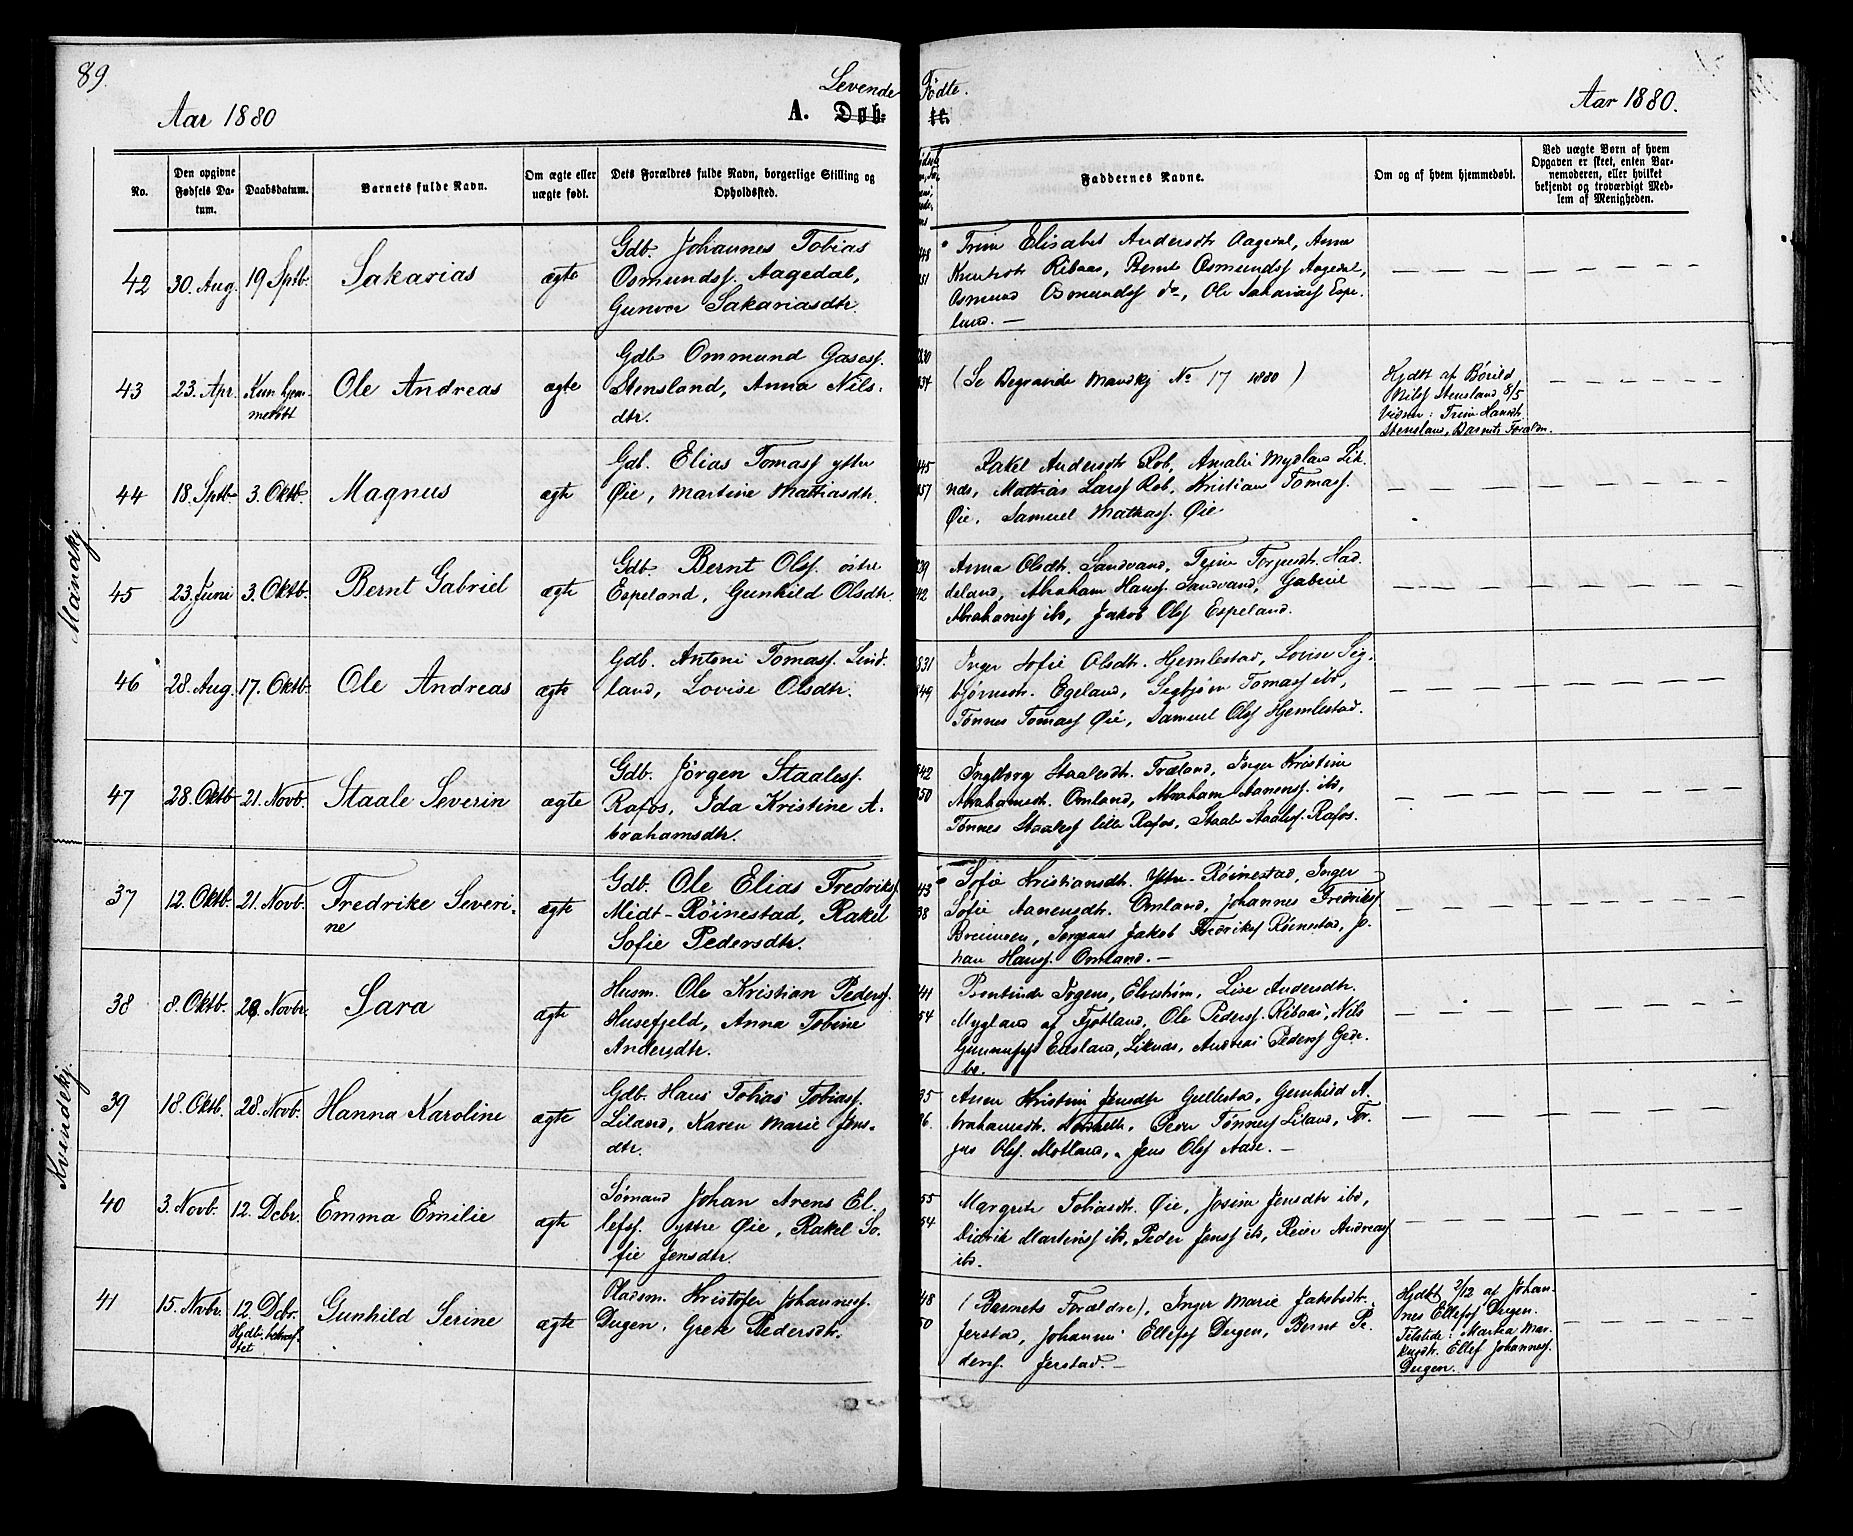 89.
Levende Fødte.
Aar 1880
A. Døbte.
Aar 1880.
No.
Den opgivne Fødsels Datum.
Daabsdatum.
Barnets fulde Navn.
Om ægte eller uægte født.
Dets Forældres fulde Navn, borgerlige Stilling og Opholdssted.
Faddernes Navne.
Om og af hvem hjemmedøbt.
Ved uægte Børn af hvem Opgaven er skeet, enten Barnemoderen, eller hvilket bekjendt og troværdigt Medlem af Menigheden.
Mandkj.
42 30. Aug. 19 Sptb. Sakarias ægte
Gdb. Johannes Tobias
Osmundsf. Aagedal,
Gunvor Sakariasdtr.
48
51
Trine Elisabet Andersdtr Aagedal, Anna
Knutsdtr Ribaas, Bernt Osmundsf Aagedal,
Osmund Osmundsf do, Ole Sakariasf Espe-
land. —
43 23. Apr. Kun hjem-
medøbt
Ole Andreas ægte
Gdb Ommund Gasesf.
Stensland, Anna Nils-
dtr.
1830
34
(Se Begravede Mandkj No 17 1880)
Hjdt af Børild
Nilsf Stensland 8/5
Vidner: Trine Hansdtr
Stensland, Barnets Forældre.
44 18. Sptb 3. Oktb. Magnus ægte
Gdb. Elias Tomasf ytter
Øie, Martine Mattiasdtr.
45
57
Rakel Andersdtr Rob, Amalie Mygland Lik-
nes, Mathias Larsf Rob, Kristian Tomasf.
Øie, Samuel Mathiasf. Øie
45 23. Juni 3. Oktb. Bernt Gabriel ægte
Gdb. Bernt Olsf. østre
Espeland, Gunhild Olsdtr.
39
42
Anna Olsdtr. Sandvand, Trine Torgersdtr Had-
deland, Abraham Hansf. Sandvand, Gabriel
Abrahamsf ibd, Jakob Olsf Espeland.
46 28. Aug. 17. Oktb. Ole Andreas ægte
Gdb. Antoni Tomasf. Lind-
land, Lovise Olsdtr.
831
49
Inger Sofie Olsdtr. Hjemlestad, Lovise Sig-
bjørnsdtr. Egeland, Segbjørn Tomasf ibd,
Tønnes Tomasf Øie, Samuel Olsf Hjemlestad.
47 28. Oktb 21. Novb. Staale Severin ægte
Gdb. Jørgen Staalesf.
Rafos, Ida Kristine A-
brahamsdtr.
42
50
Ingeborg Staalesdtr. Træland, Inger Kristine
Abrahamsdtr. Omland, Abraham Aanensf. ibd,
Tønnes Staalesf lille Rafos, Staale Staalesf. Rafos.
Kvindekj.
37 12. Oktb. 21. Novb. Fredrike Severi-
ne
ægte
Gdb. Ole Elias Fredriksf.
Midt-Röinestad, Rakel
Sofie Pedersdtr.
43
38
Sofie Kristiansdtr. Ytre-Röinestad, Inger
Sofie Aanensdtr. Omland, Johannes Fredriksf
Breimoen, Sergeant Jakob Fredriksf Röinestad, Jo-
han Hansf. Omland. —
38 8. Oktb. 28 Novbr. Sara ægte
Husm. Ole Kristian Pedersf.
Husefjeld, Anna Tobine
Andersdtr.
41
54
Elvestrøm, Lise Andersdtr.
Mygland af Fjotland, Ole Pedersf. Ribaas, Nils
Egesland, Liknes, Andreas Pedersf Gede-
bo.
39 18. Oktb. 28. Novb. Hanna Karoline ægte
Gdb. Hans Tobias Tobiasf.
Liland, Karen Marie Jens-
dtr.
35
36.
Anne Kristine Jensdtr Gullestad, Gunhild A-
brahamsdtr. Peder Tønnesf Liland, Tor-
jus Olsf. Motland, Jens Olsf Aase. —
40 3. Novb. 12. Dcbr. Emma Emilie ægte
Sømand Johan Arens El-
lefsf. yttre Øie, Rakel So-
fie Jensdtr.
55
54
Margrete Tobiasdtr. Øie, Josine Jensdtr ibd,
Didrik Martinsf ibd, Peder Jensf ibd, Reier Andreasf
ibd.
41 15. Novbr. 12. Dcbr.
Hjdt. bekræf-
tet
Gunhild Serine ægte
Pladsm. Kristofer Johannesf.
Dugen, Grete Pedersdtr.
48
50
(Barnets Forældre), Inger Marie Jakobsdtr.
Jerstad, Johannes Ellefsf Dugen, Bernt Pe-
dersf. Jerstad. —
Hjdbt 2/12 af Johan-
nes Ellefsf Dugen.
Tilstede: Martea Mar-
kusdtr. Ellef Johannesf.
Dugen.